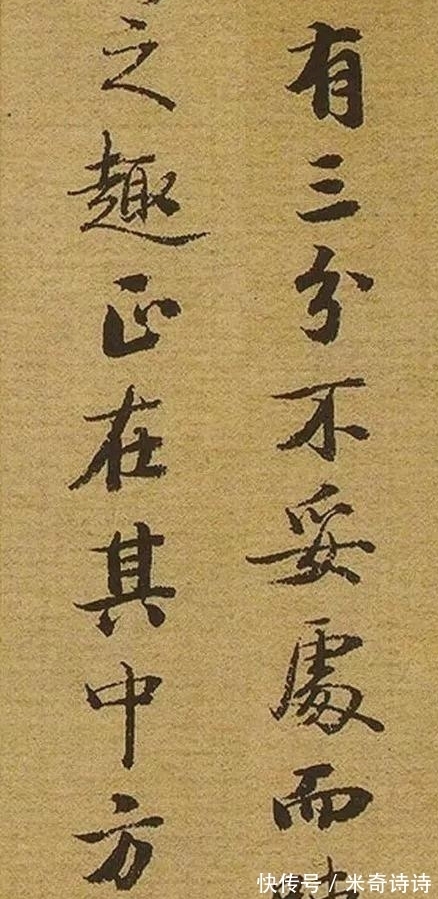 有三分不妥處而
之趣正在其中方
快传号/米奇诗诗